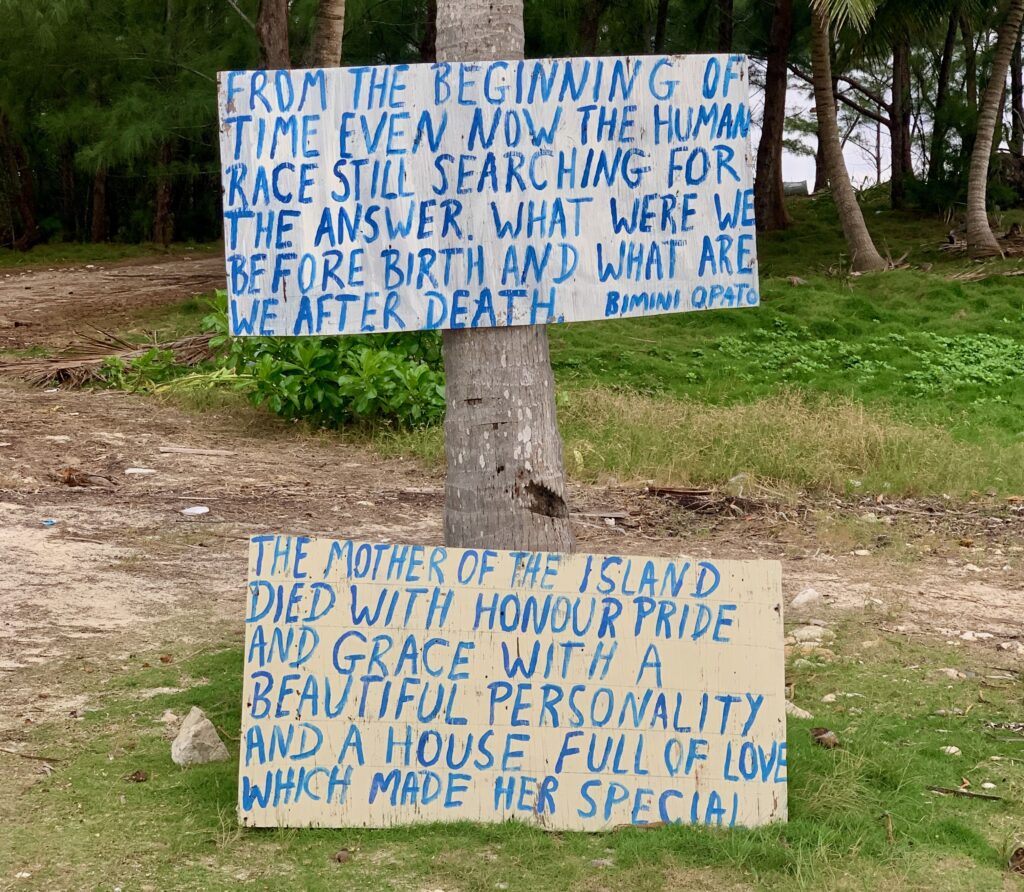 FROM THE BEGINNING OF
TIME EVEN NOW THE HUMAN
RACE STILL SEARCHING FOR
THE ANSWER. WHAT WERE WE
BEFORE BIRTH AND WHAT ARE
WE AFTER DEATH. BIMINI OPATO
THE MOTHER OF THE ISLAND
DIED WITH HONOUR PRIDE
AND GRACE WITH A
BEAUTIFUL PERSONALITY
AND A HOUSE FULL OF LOVE
WHICH MADE HER SPECIAL